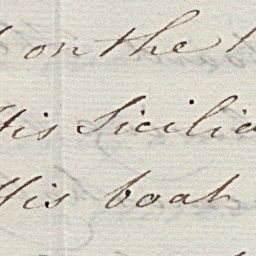 on the
His Sicilia
His boat